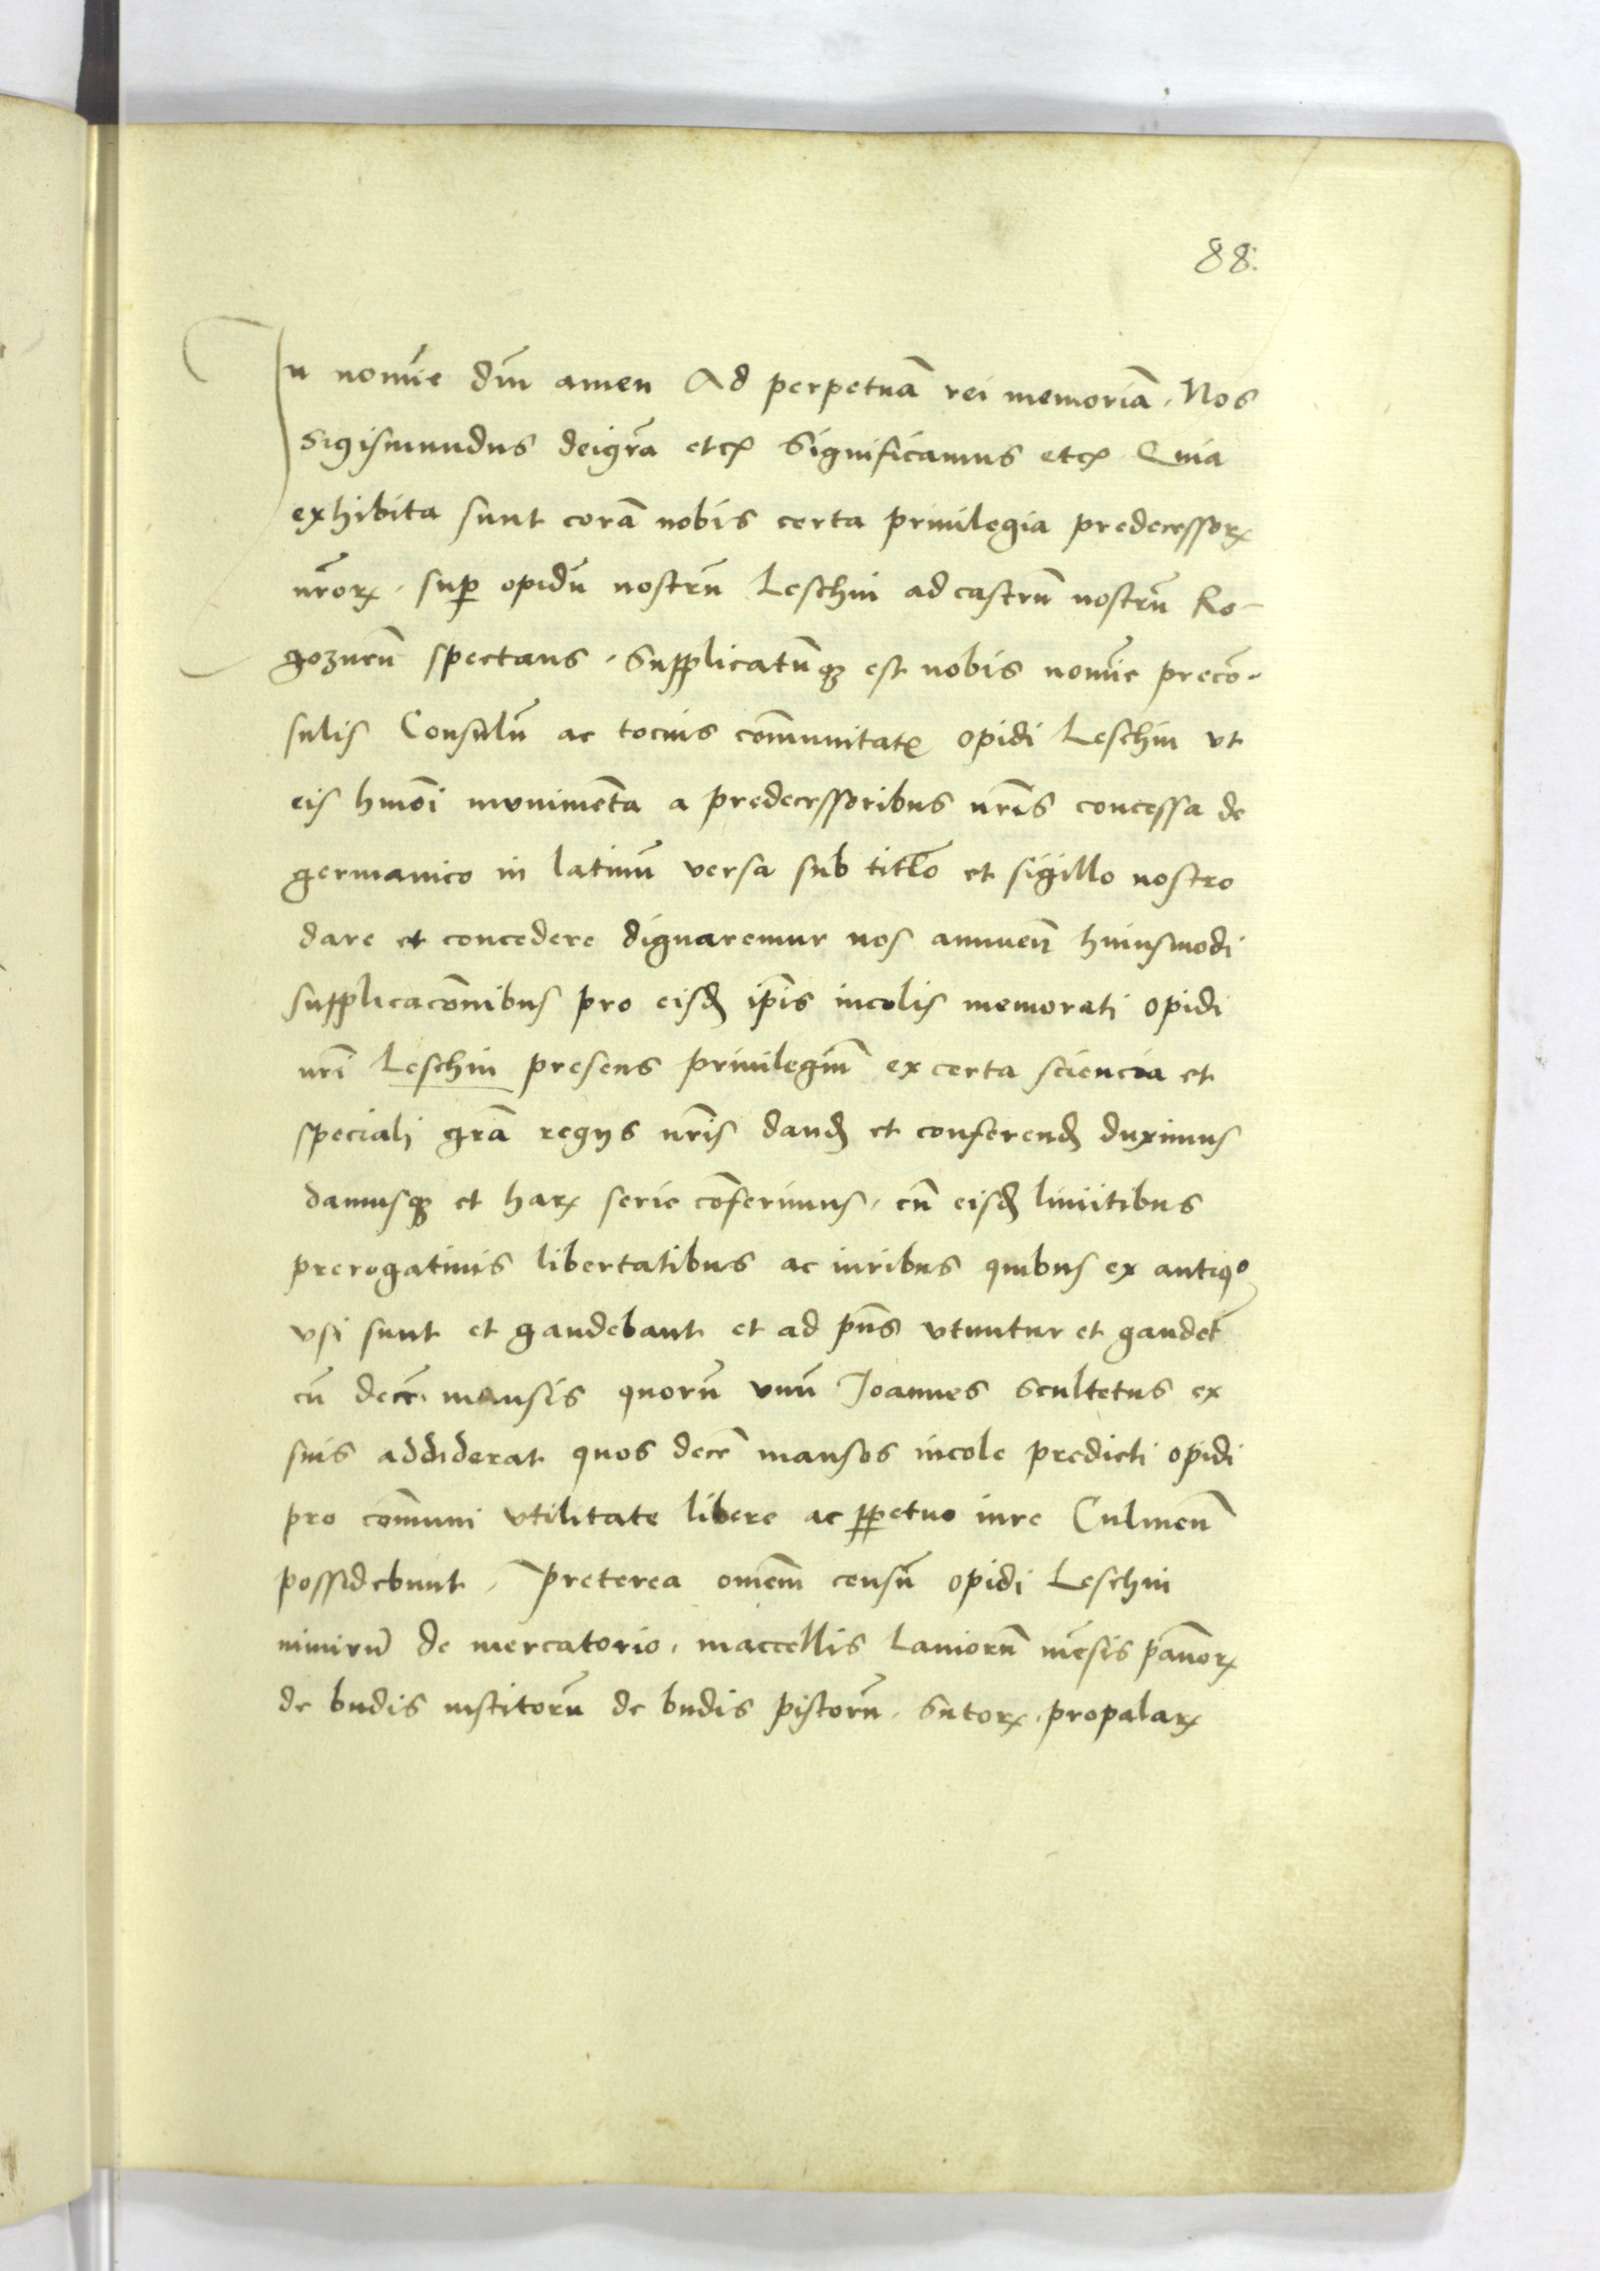 88.
In nomĩe dñi amen Ad perpetuã rei memoriã. Nos
Sigismundus deigrã etcꝭ Significamus etcꝭ Quia
exhibita sunt corã nobis certa priuilegia predecessorꝝ
nrõrꝝ. suꝑ opidũ nostrũ Leschin ad castrũ nostrũ Ro-
goznẽn spectans. Supplicatũqꝫ est nobis nomĩe precõ-
sulis Consulũ ac tocius cõmunitatꝭ opidi Leschin vt
eis hmõi munimẽta a predecessoribus nrĩs concessa de
germanico in latinũ versa sub titlõ et sigillo nostro
dare et concedere dignaremur nos annuen̄ huiusmodi
supplicacõnibus pro eisđ ipĩs incolis memorati opidi
nrĩ Leschin presens priuilegiũ ex certa sciencia et
speciali grã regijs nrĩs danđ et conferenđ duximus
damusqꝫ et harꝝ serie cõferimus. cũ eisđ limitibus
prerogatiuis libertatibus ac iuribus quibus ex antiqº
vsi sunt et gaudebant et ad pñs vtuntur et gaudẽt
cũ decẽ mansis quorũ vnũ Joannes scultetus ex
suis addiderat quos decẽ mansos incole predicti opidi
pro cõmuni vtilitate libere ac ꝑpetuo iure Culmen̄
possidebunt. Preterea omẽm censũ opidi Leschin
nimirũ de mercatorio. maccellis laniorũ mẽsis pãnorꝝ
de budis institorũ de budis pistorũ. Sutorꝝ. propalarꝝ